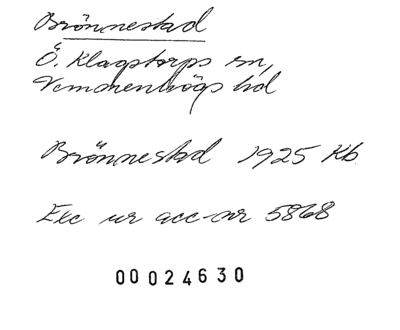 Brönnestad
Ö. Klagstorps sn,
Vemmenhögs hd
Brönnestad 1925 Kb.
Exc ur acc-nr 5868
00024630